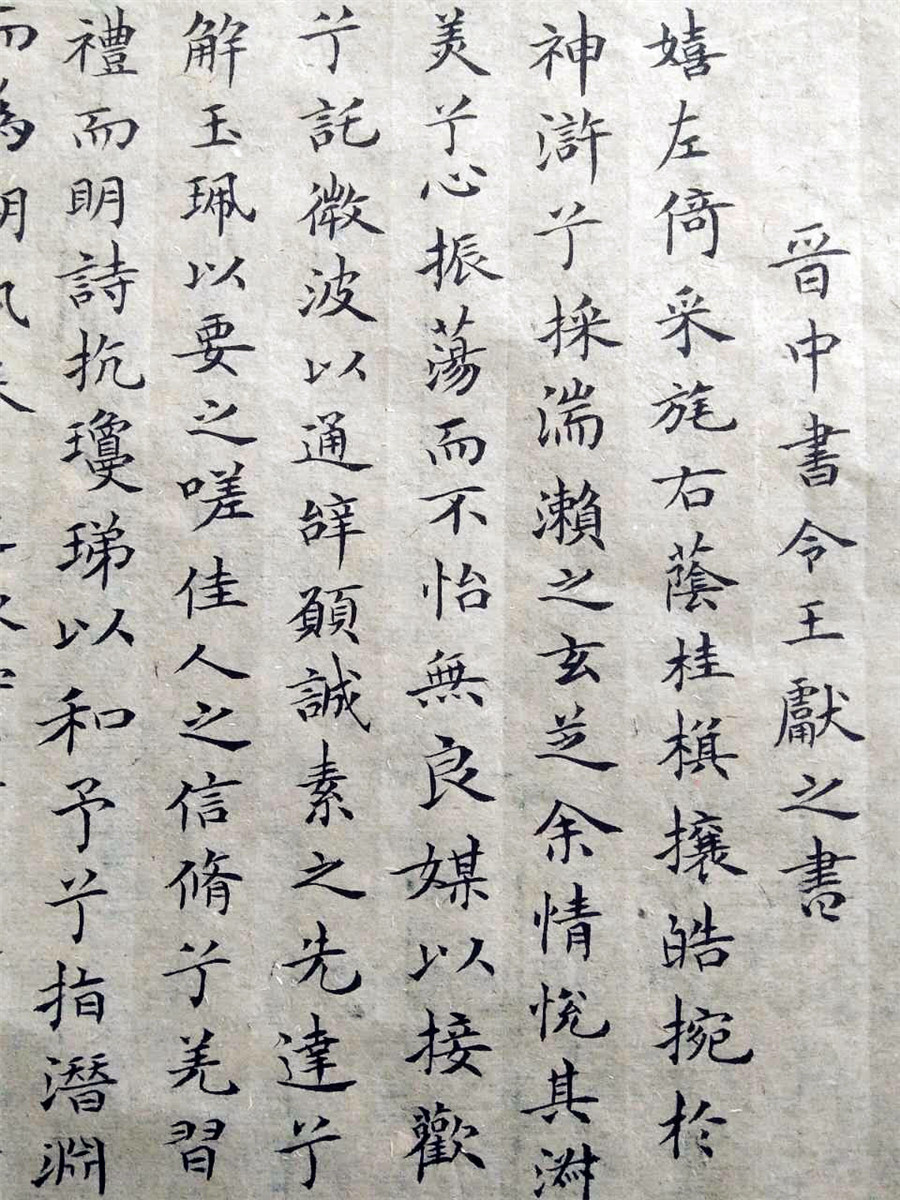 晉中書令王獻之書
嬉左倚采旄右蔭桂棋攘皓捥於
神滸兮採湍瀨之玄芝余情悅其淋
美兮心振蕩而不怡無良媒以接歡
兮託微波以通辭願誠素之先達兮
解玉珮以要之嗟佳人之信脩兮羌習
禮而明詩抗瓊珶以和予兮指潛淵
而為期